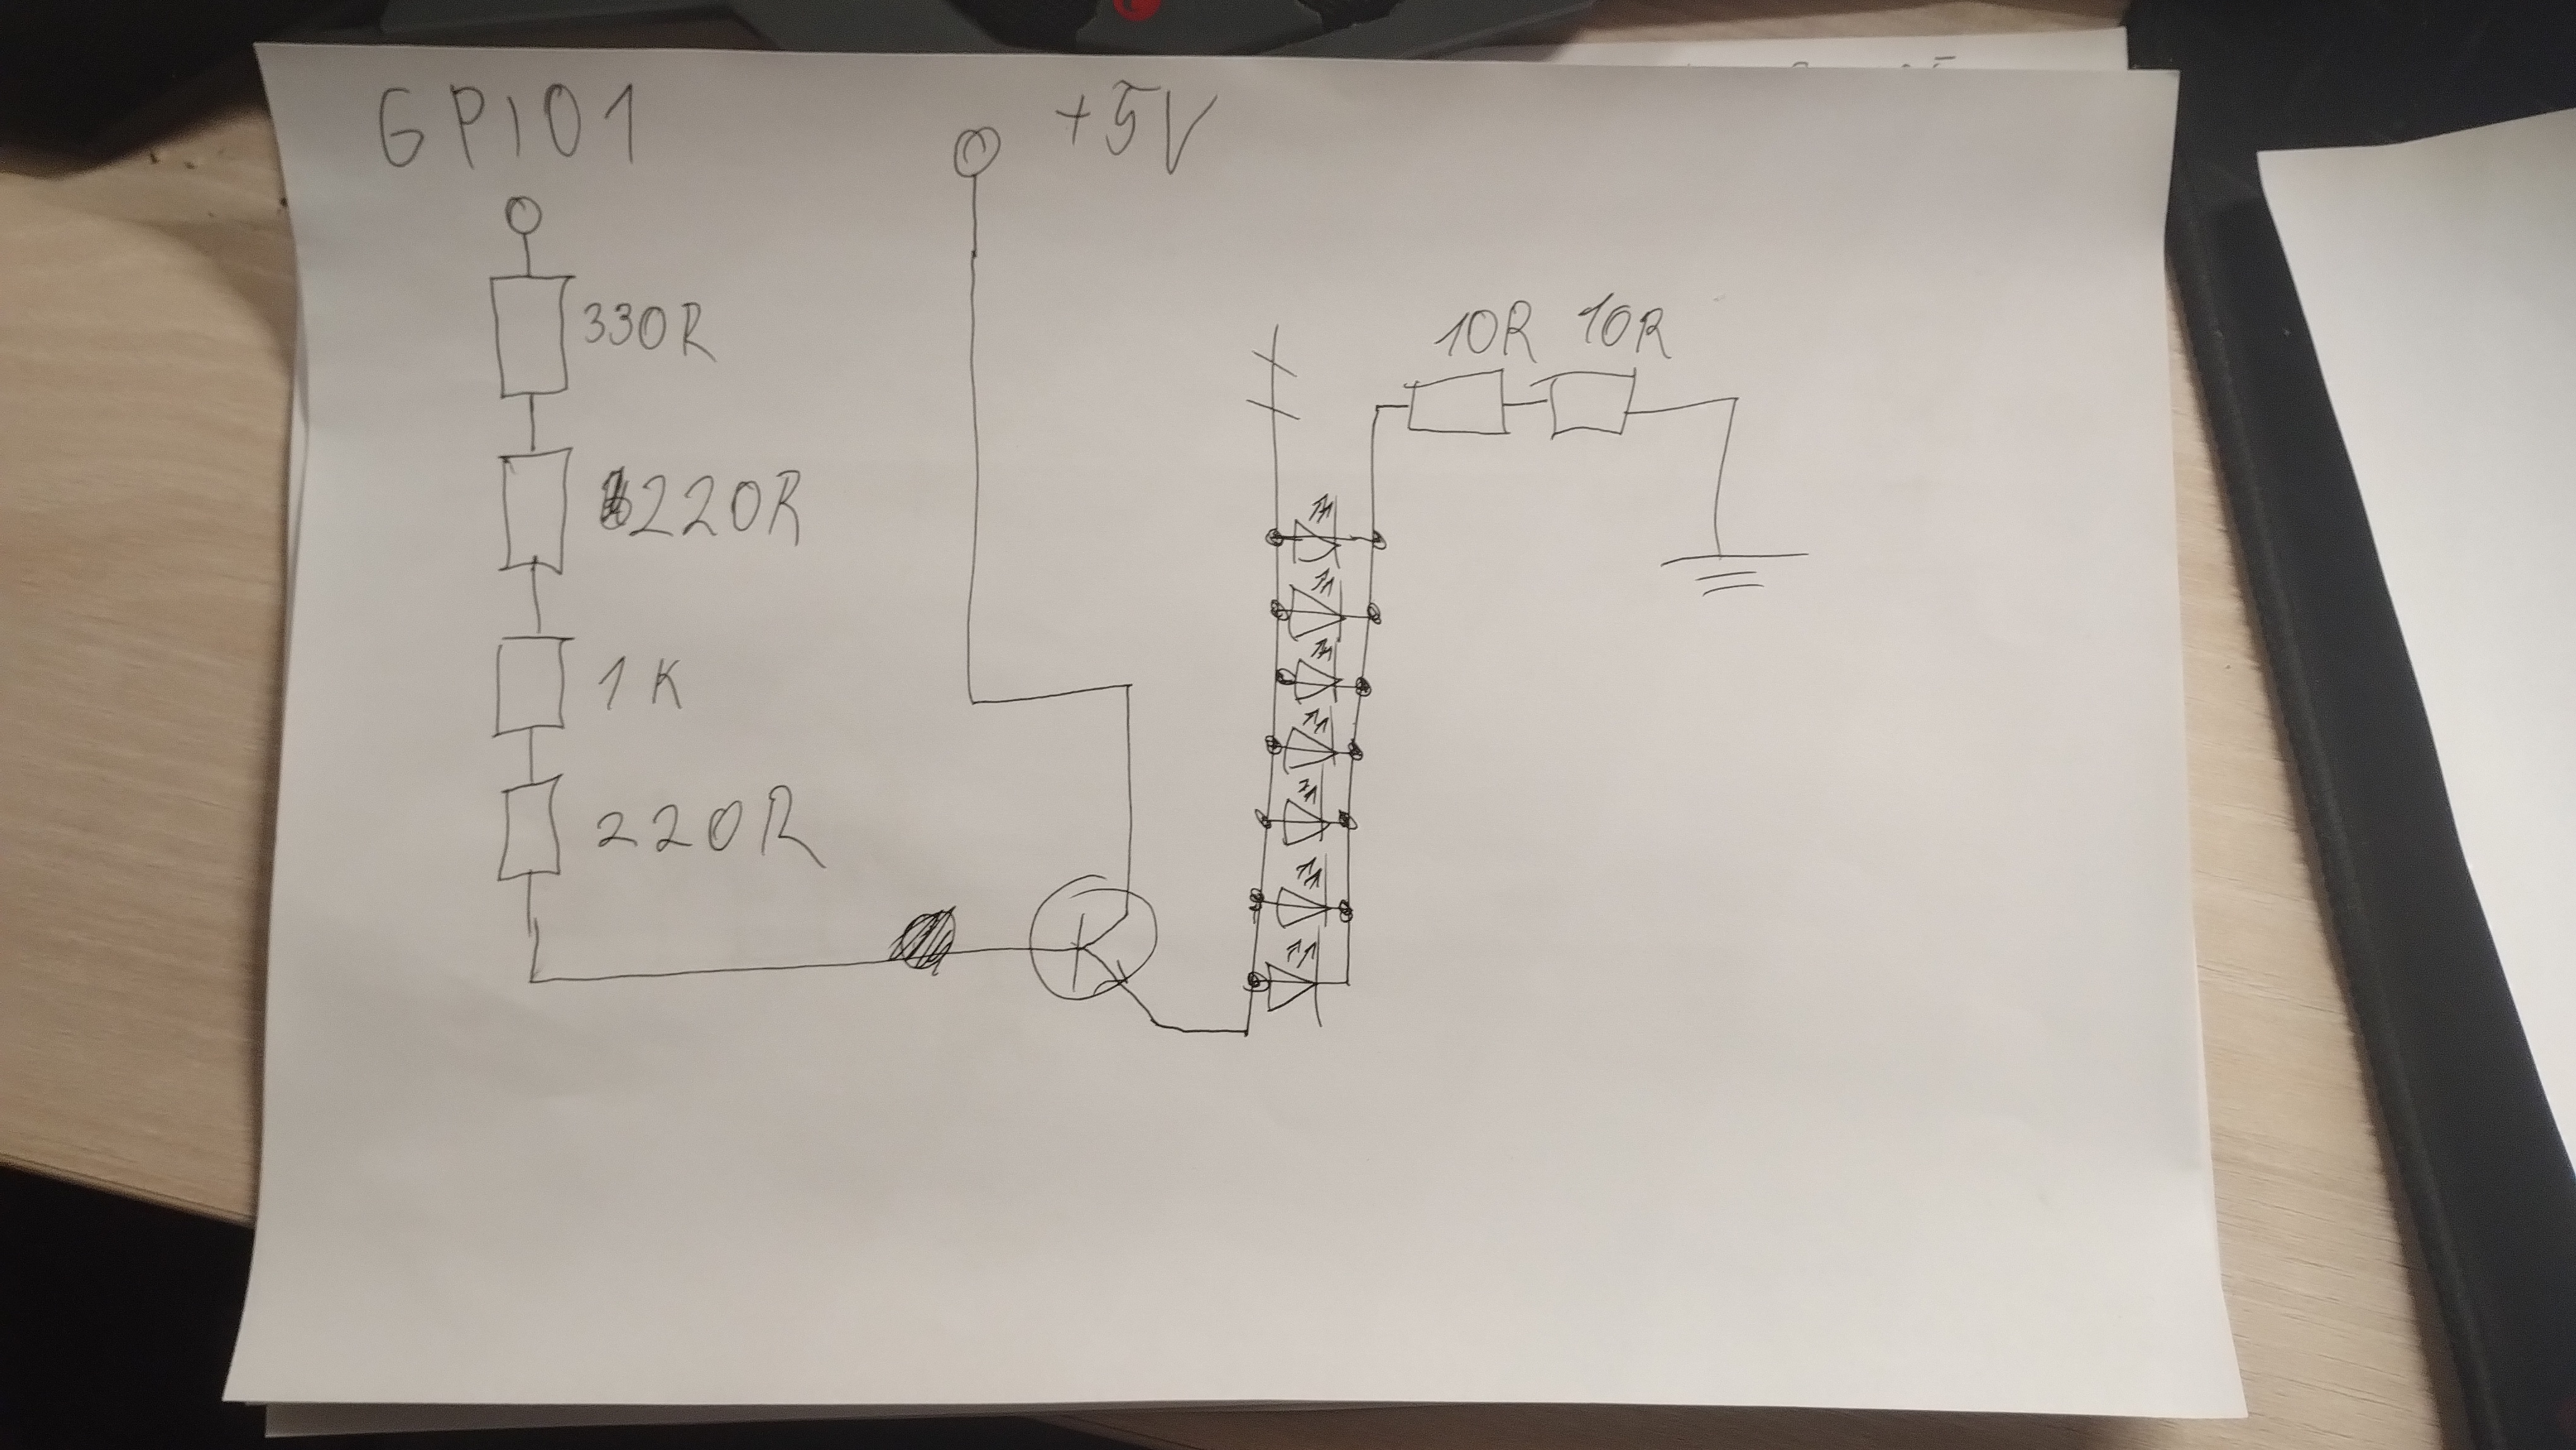 GPIO1
+5V
330R
220R
1K
220R
10R
10R